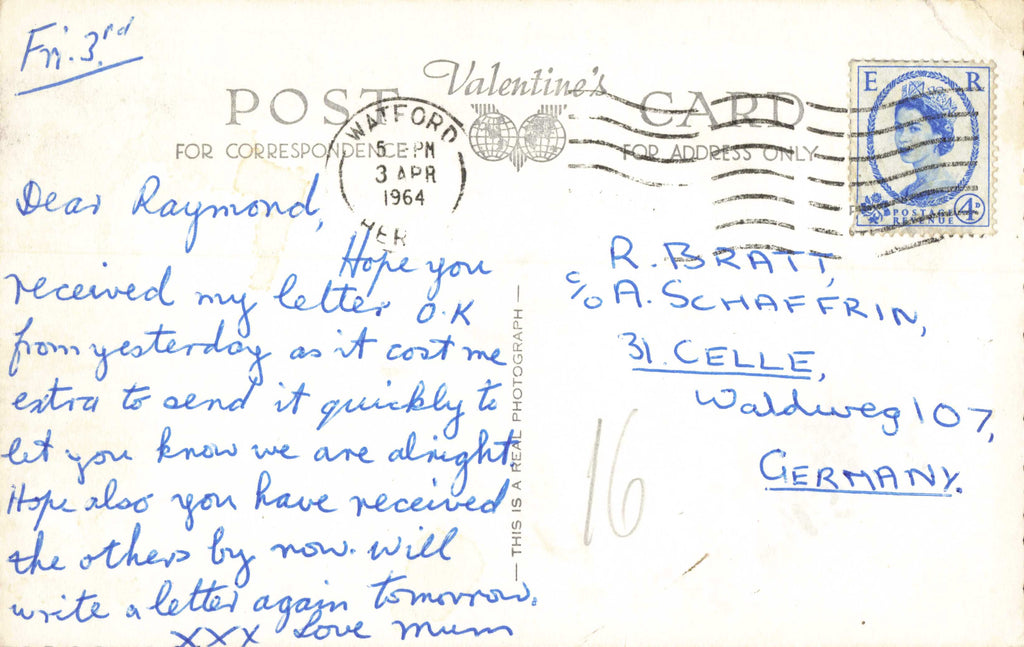 Fri. 3rd
Valentine's
POST CARD
FOR CORRESPONDENCE
FOR ADDRESS ONLY
WATFORD
5 PM
3 APR
1964
HER
E R
POSTAGE
REVENUE
4D
Dear Raymond,
Hope you
received my letter O.K
from yesterday as it cost me
extra to send it quickly to
let you know we are alright.
Hope also you have received
the others by now. Will
write a letter again tomorrow.
XXX Love Mum
— THIS IS A REAL PHOTOGRAPH —
R. BRATT,
c/o A. SCHAFFRIN,
31. CELLE,
Waldweg 107,
GERMANY.
16